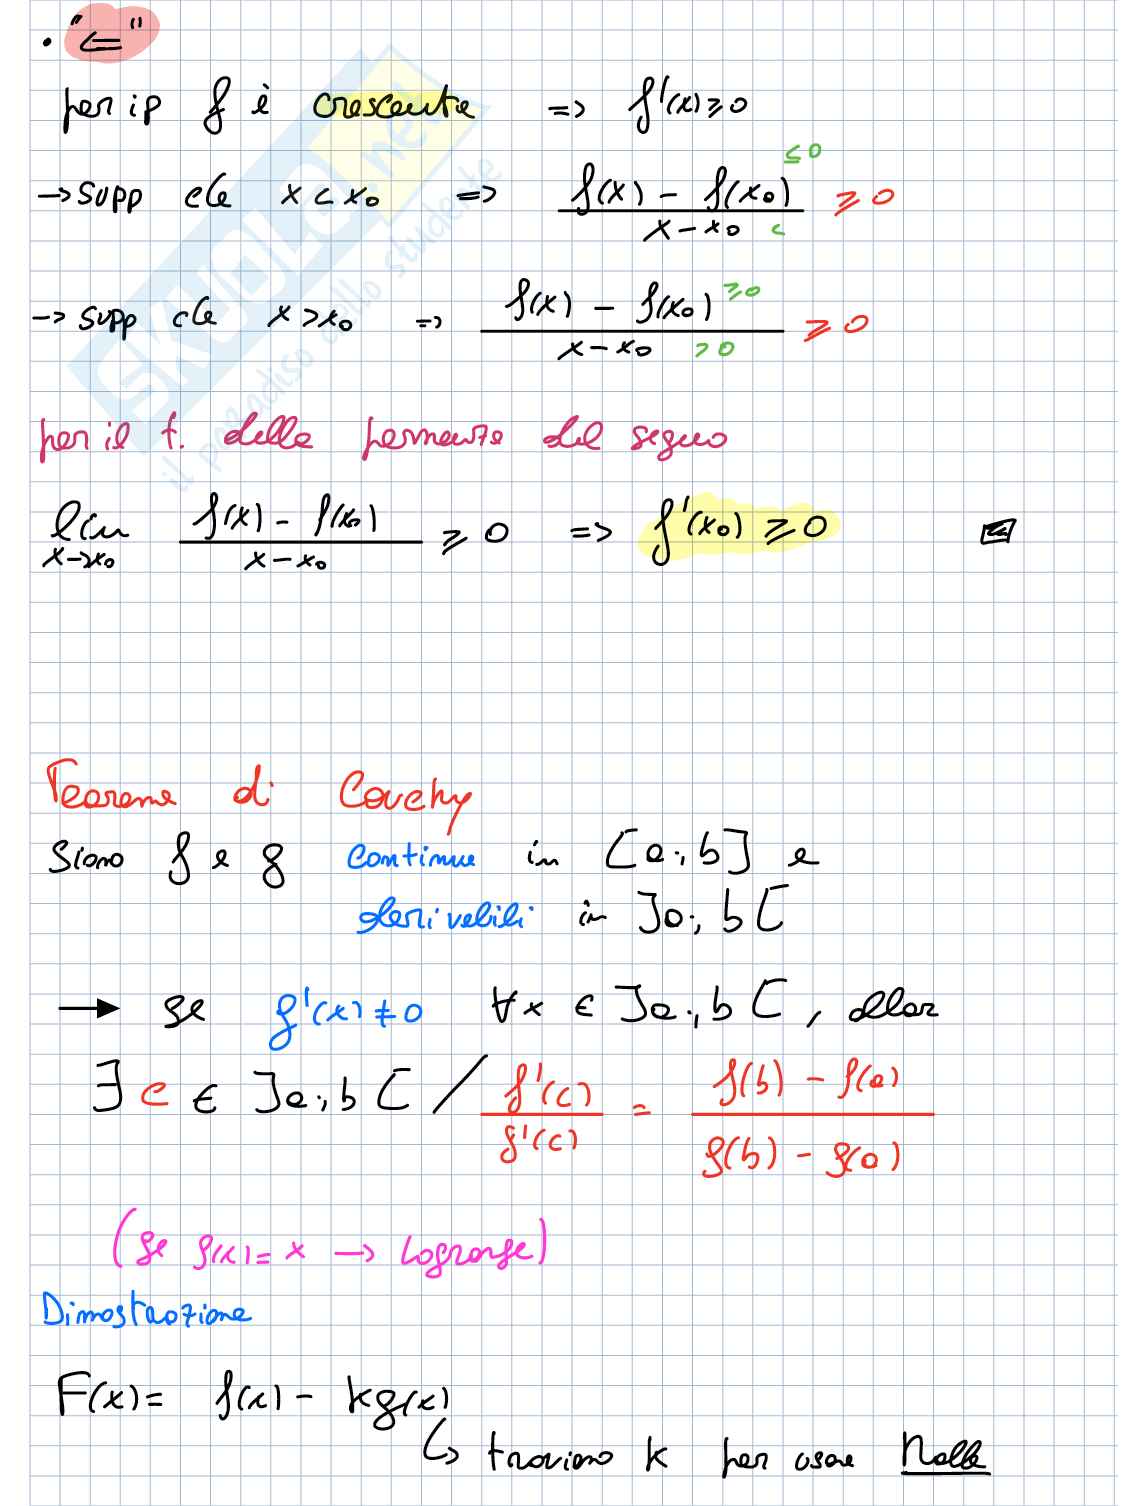 • "<="
per ip f è crescente => f'(x) ≥ 0
→ Supp che x < x₀ => (f(x) - f(x₀) ≤ 0) / (x - x₀ <) ≥ 0
→ Supp che x > x₀ => (f(x) - f(x₀) ≥ 0) / (x - x₀ > 0) ≥ 0
per il t. della permanenza del segno
lim x→x₀ (f(x) - f(x₀)) / (x - x₀) ≥ 0 => f'(x₀) ≥ 0
Teorema di Cauchy
Siano f e g continue in [a; b] e
derivabili in ]a; b[
→ se g'(x) ≠ 0 ∀x ∈ ]a; b[, allor
∃ c ∈ ]a; b[ / f'(c) / g'(c) = (f(b) - f(a)) / (g(b) - g(a))
(se g(x) = x → Lagrange)
Dimostrazione
F(x) = f(x) - kg(x)
↳ troviamo k per usare Rolle
SKUOLA.net
il paradiso dello studente